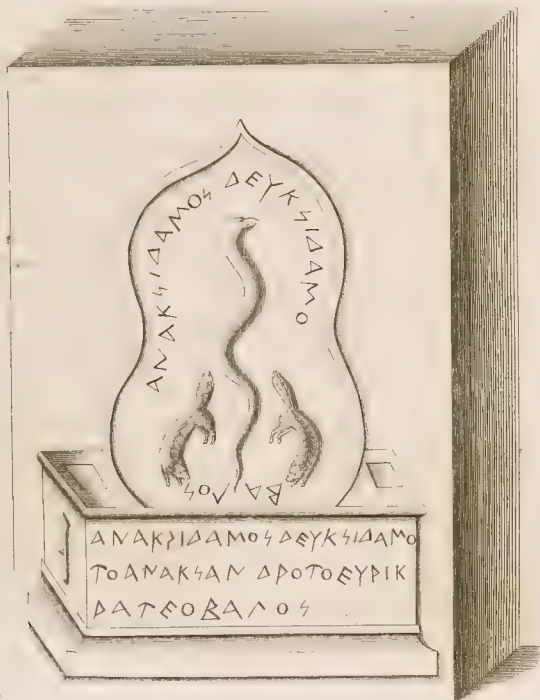 ΑΝΑΚΣΙΔΑΜΟΣ ΔΕΥΚΣΙΔΑΜΟ
ΒΑΛΟΣ
ΑΝΑΚΣΙΔΑΜΟΣ ΔΕΥΚΣΙΔΑΜΟ
ΤΟΑΝΑΚΣΑΝ ΔΡΟΤΟΕΥΡΙΚ
ΡΑΤΕΟΒΑΛΟΣ